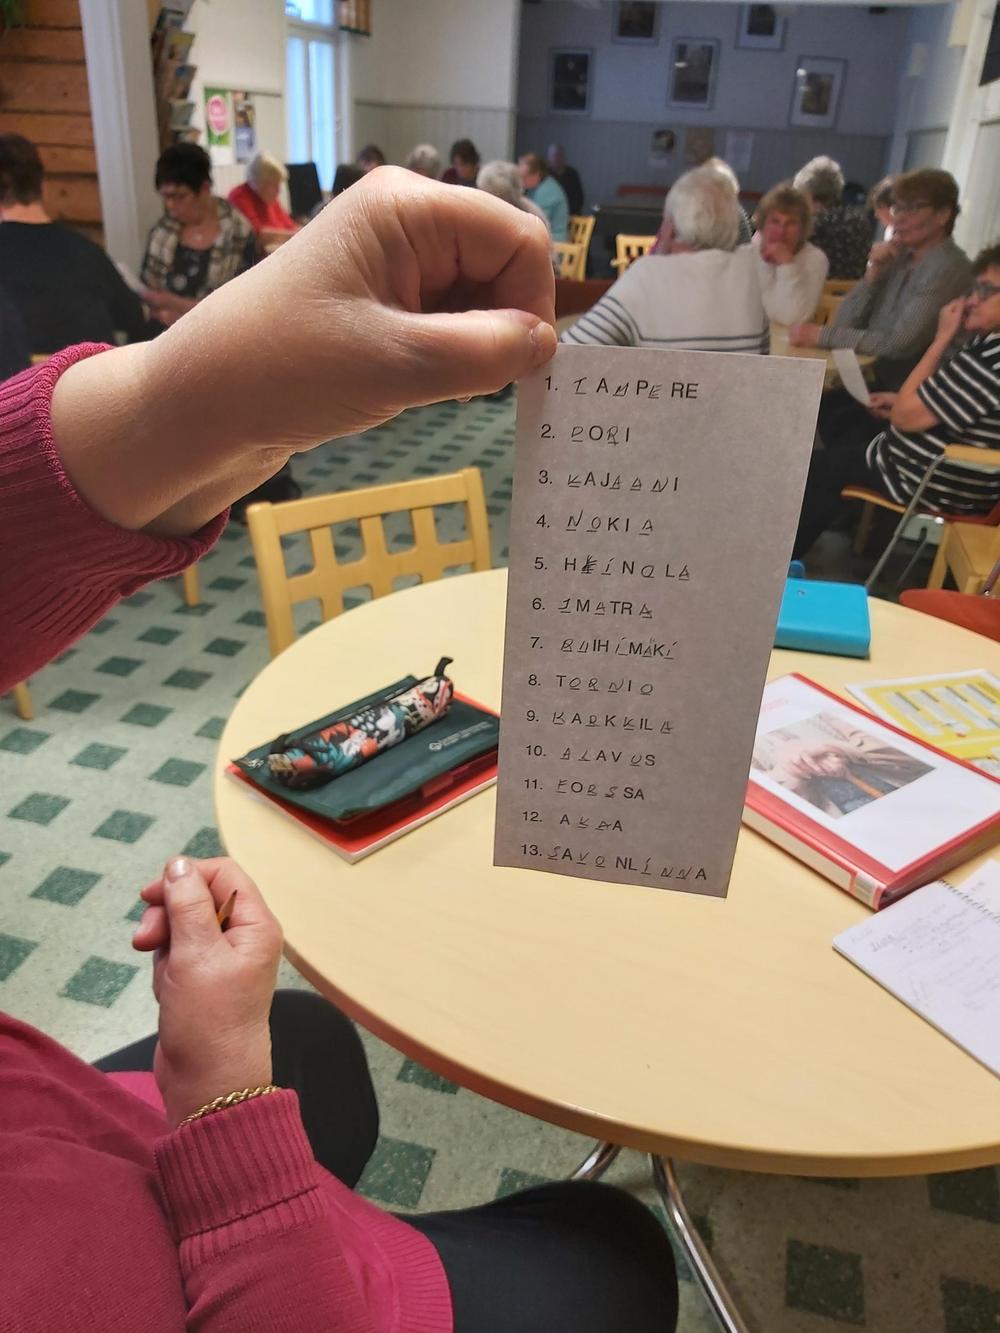 1. TAMPERE
2. PORI
3. KAJAANI
4. NOKIA
5. HEINOLA
6. IMATRA
7. RIIHIMÄKI
8. TORNIO
9. KARKKILA
10. ALAVUS
11. FORSSA
12. AKAA
13. SAVONLINNA